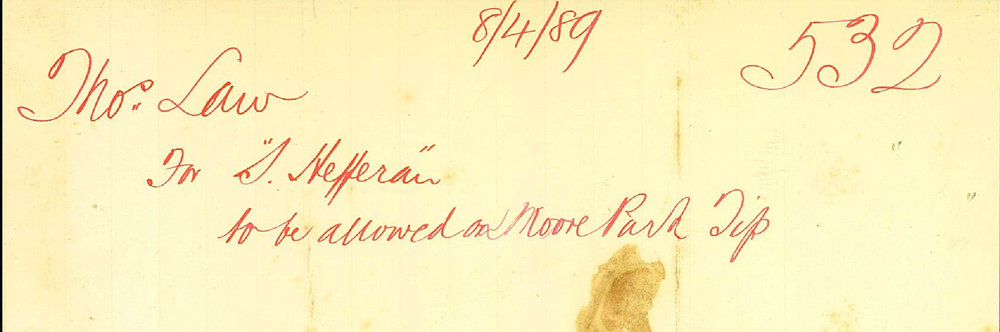 8/4/89
532
Thos. Law
For "S. Hefferan"
to be allowed on Moore Park Tip